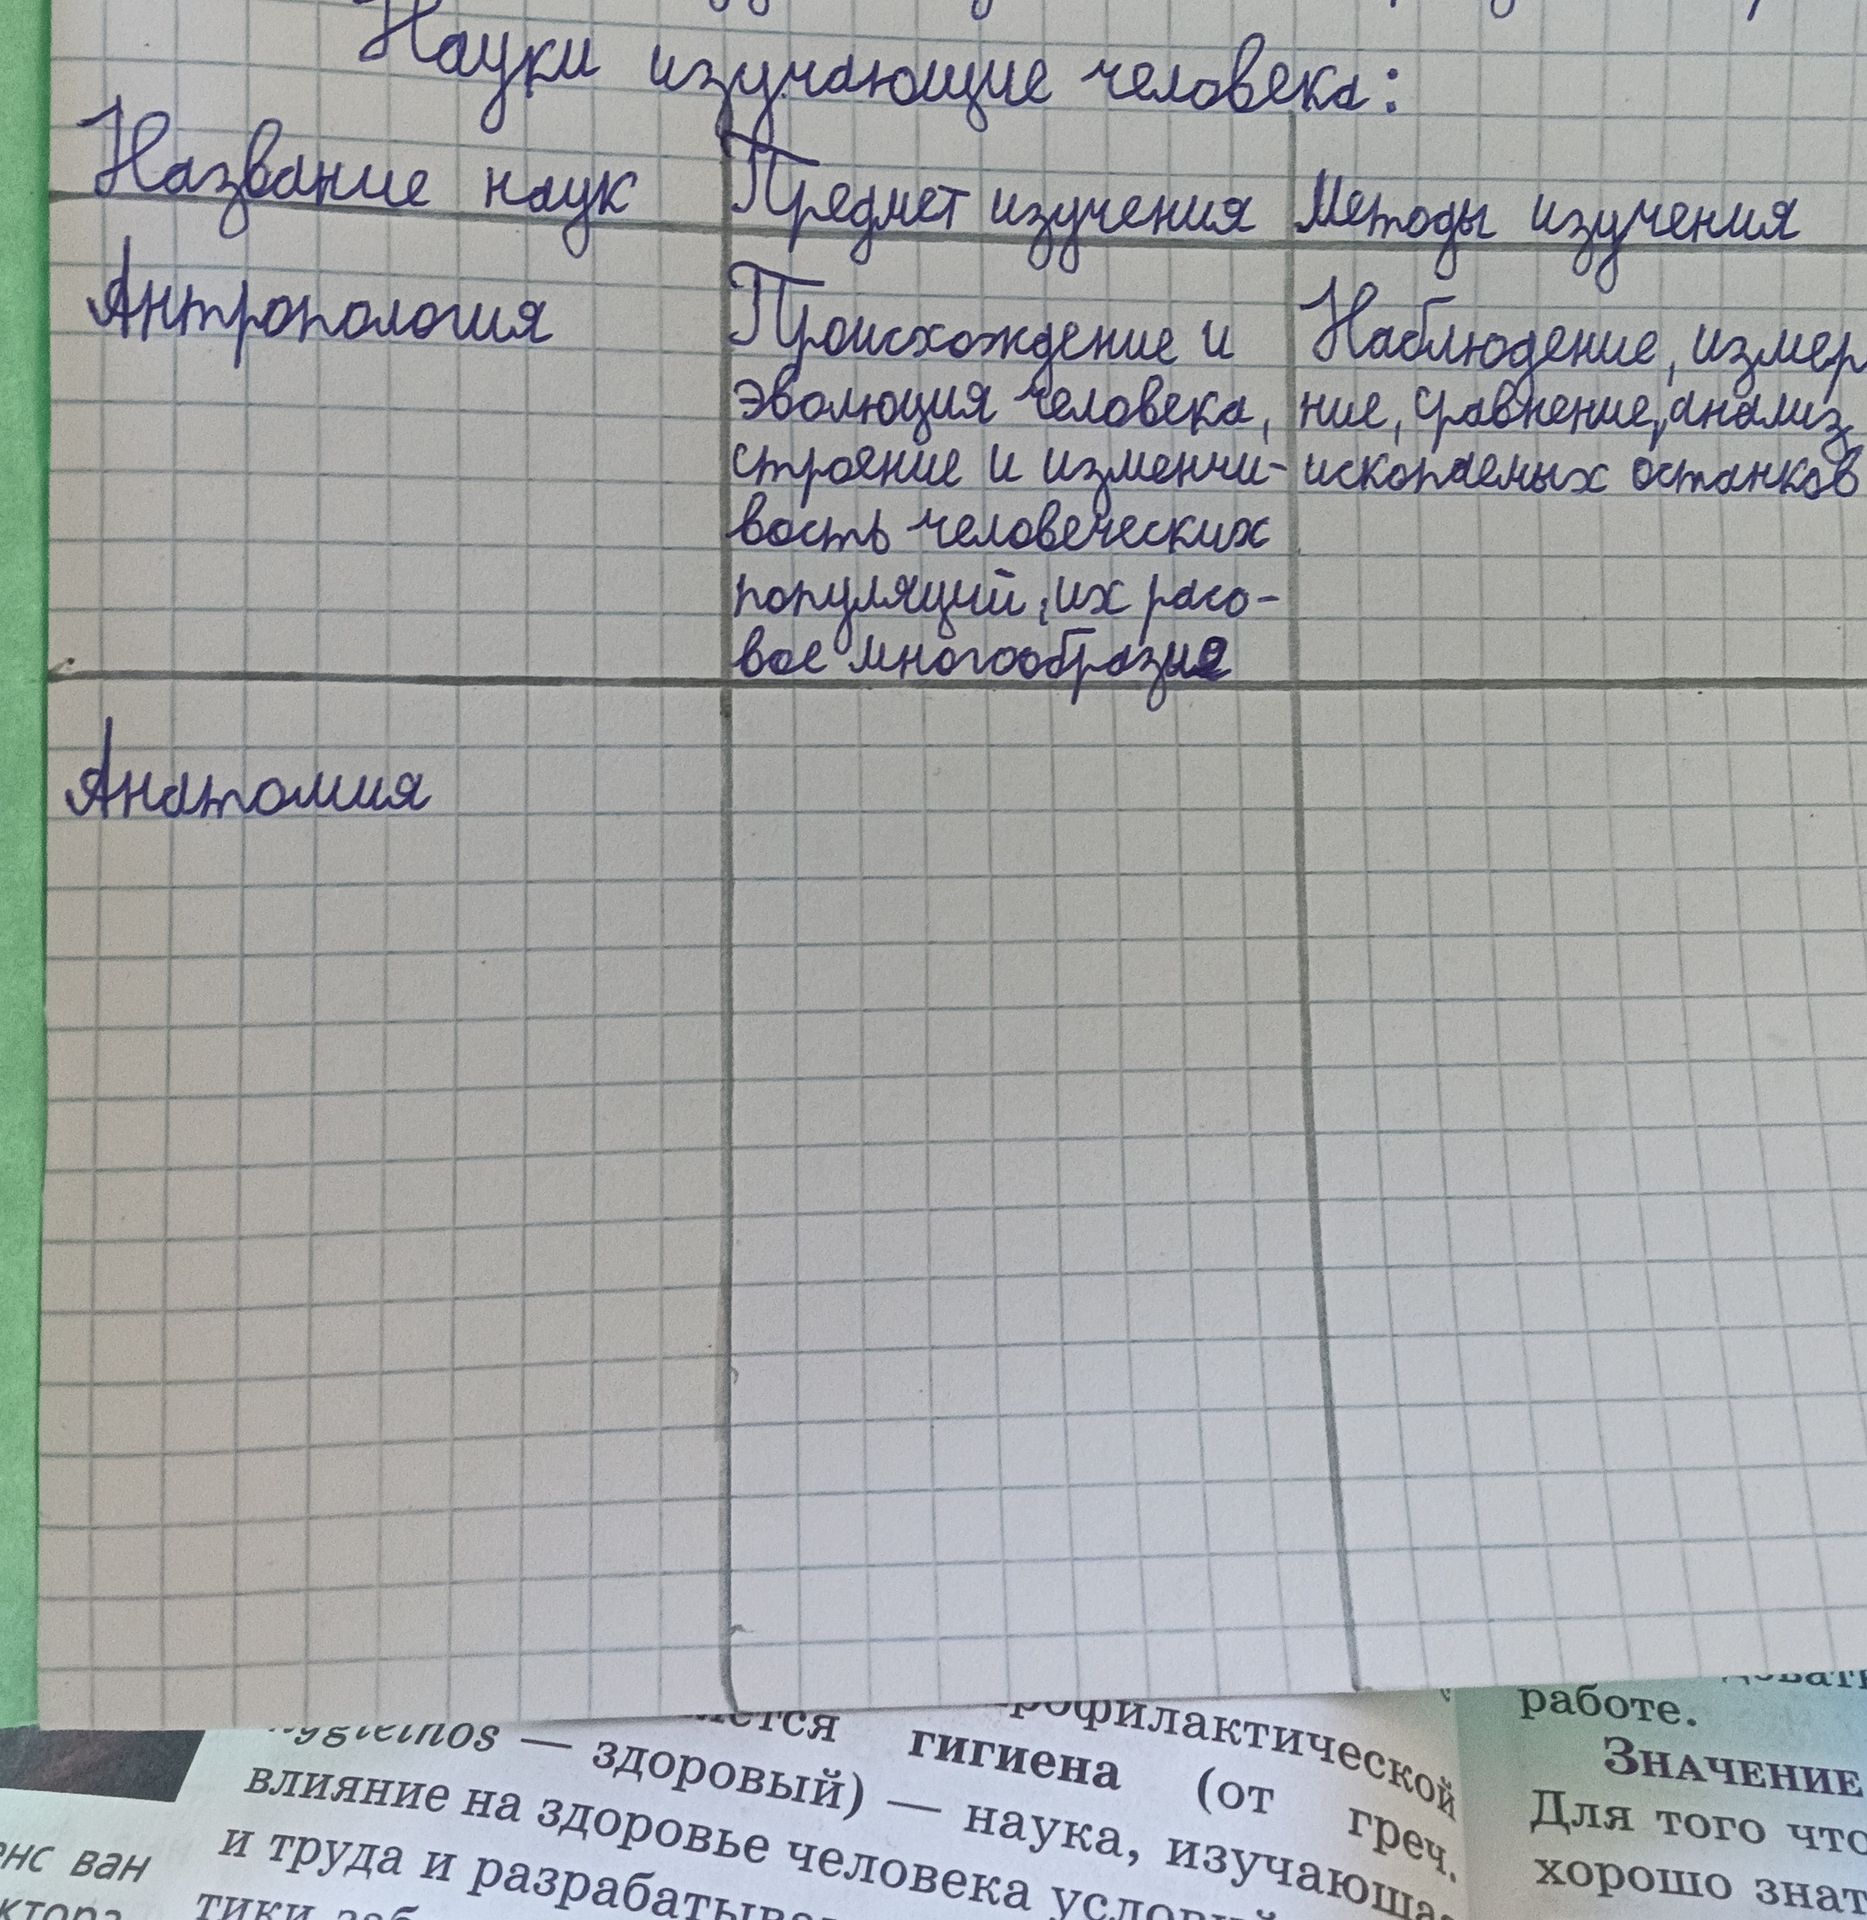 Науки изучающие человека:
Название наук
Предмет изучения
Методы изучения
Антропология
Происхождение и
эволюция человека,
строение и изменчи-
вость человеческих
популяций, их расо-
вое многообразие
Наблюдение, измер
ние, сравнение, анализ
ископаемых останков
Анатомия
гигиена (от греч.
— здоровый) — наука, изучающа-
влияние на здоровье человека
и труда и разрабатыва
тики
нс ван
ктора
профилактической
работе.
ЗНАЧЕНИЕ
Для того что
хорошо знат